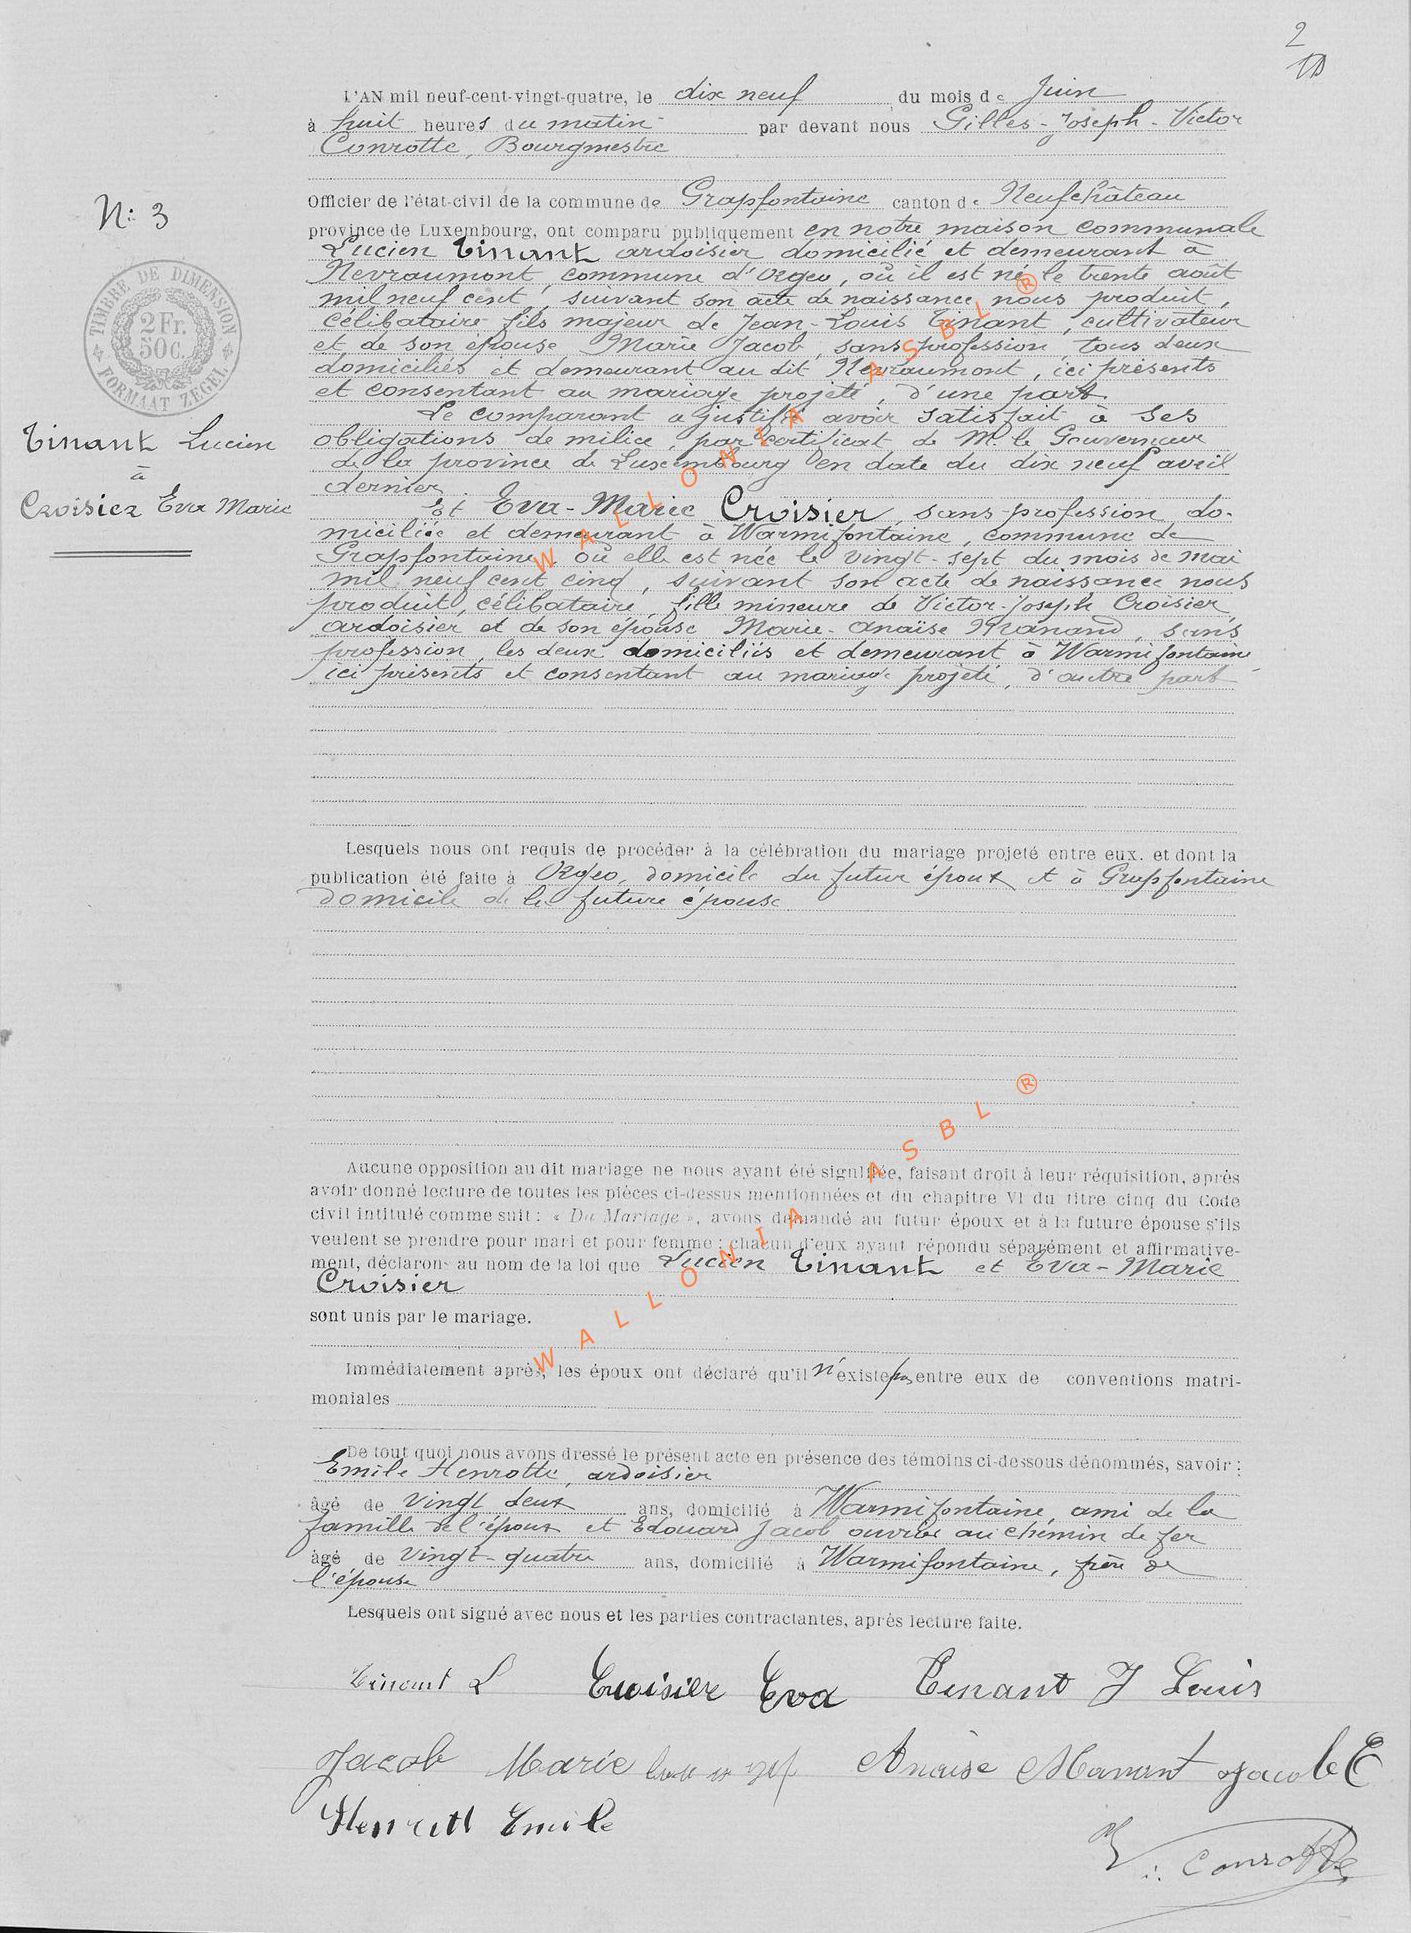 2
L'AN mil neuf-cent-vingt-quatre, le dix neuf du mois de Juin
à huit heures du matin par devant nous Gilles-Joseph-Victor
Conrotte, Bourgmestre
Officier de l'état-civil de la commune de Grapfontaine canton de Neufchâteau
province de Luxembourg, ont comparu publiquement en notre maison communale
Lucien Tinant ardoisier domicilié et demeurant à
Nevraumont, commune d'Orgeo, où il est né le trente août
mil neuf cent, suivant son acte de naissance nous produit,
célibataire fils majeur de Jean-Louis Tinant, cultivateur
et de son épouse Marie Jacob, sans profession, tous deux
domiciliés et demeurant au dit Nevraumont, ici présents
et consentant au mariage projeté, d'une part.
Le comparant a justifié avoir satisfait à ses
obligations de milice, par certificat de Mr le Gouverneur
de la province de Luxembourg en date du dix neuf avril
dernier.
Et Eva-Marie Croisier, sans profession, do-
miciliée et demeurant à Warmifontaine, commune de
Grapfontaine, où elle est née le vingt-sept du mois de mai
mil neuf cent cinq, suivant son acte de naissance nous
produit, célibataire, fille mineure de Victor-Joseph Croisier
ardoisier et de son épouse Marie-Anaïse Manand, sans
profession, les deux domiciliés et demeurant à Warmifontaine
ici présents et consentant au mariage projeté, d'autre part
N: 3
TIMBRE DE DIMENSION
2 Fr.
50 C.
FORMAAT ZEGEL
Tinant Lucien
à
Croisier Eva Marie
Lesquels nous ont requis de procéder à la célébration du mariage projeté entre eux. et dont la
publication été faite à Orgeo, domicile du futur époux et à Grapfontaine
domicile de la future épouse
Aucune opposition au dit mariage ne nous ayant été signifiée, faisant droit à leur réquisition, après
avoir donné lecture de toutes les pièces ci-dessus mentionnées et du chapitre VI du titre cinq du Code
civil intitulé comme suit : « Du Mariage », avons demandé au futur époux et à la future épouse s'ils
veulent se prendre pour mari et pour femme ; chacun d'eux ayant répondu séparément et affirmative-
ment, déclarons au nom de la loi que Lucien Tinant et Eva-Marie
Croisier
sont unis par le mariage.
Immédiatement après, les époux ont déclaré qu'il n'existe pas entre eux de conventions matri-
moniales
De tout quoi nous avons dressé le présent acte en présence des témoins ci-dessous dénommés, savoir :
Emile Henrotte, ardoisier
âgé de vingt deux ans, domicilié à Warmifontaine, ami de la
famille de l'époux et Edouard Jacob ouvrier au chemin de fer
âgé de vingt-quatre ans, domicilié à Warmifontaine, frère de
l'épouse
Lesquels ont signé avec nous et les parties contractantes, après lecture faite.
Tinant L Croisier Eva Tinant J Louis
Jacob Marie Anaïse Manant Jacob E
Henrott Emile
Conrotte
WALLONIA ASBL ®
WALLONIA ASBL ®